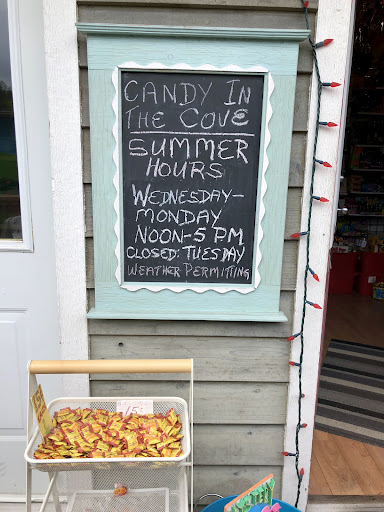 CANDY IN
THE COVE
SUMMER
HOURS
WEDNESDAY-
MONDAY
NOON-5 PM
CLOSED: TUESDAY
WEATHER PERMITTING
15¢